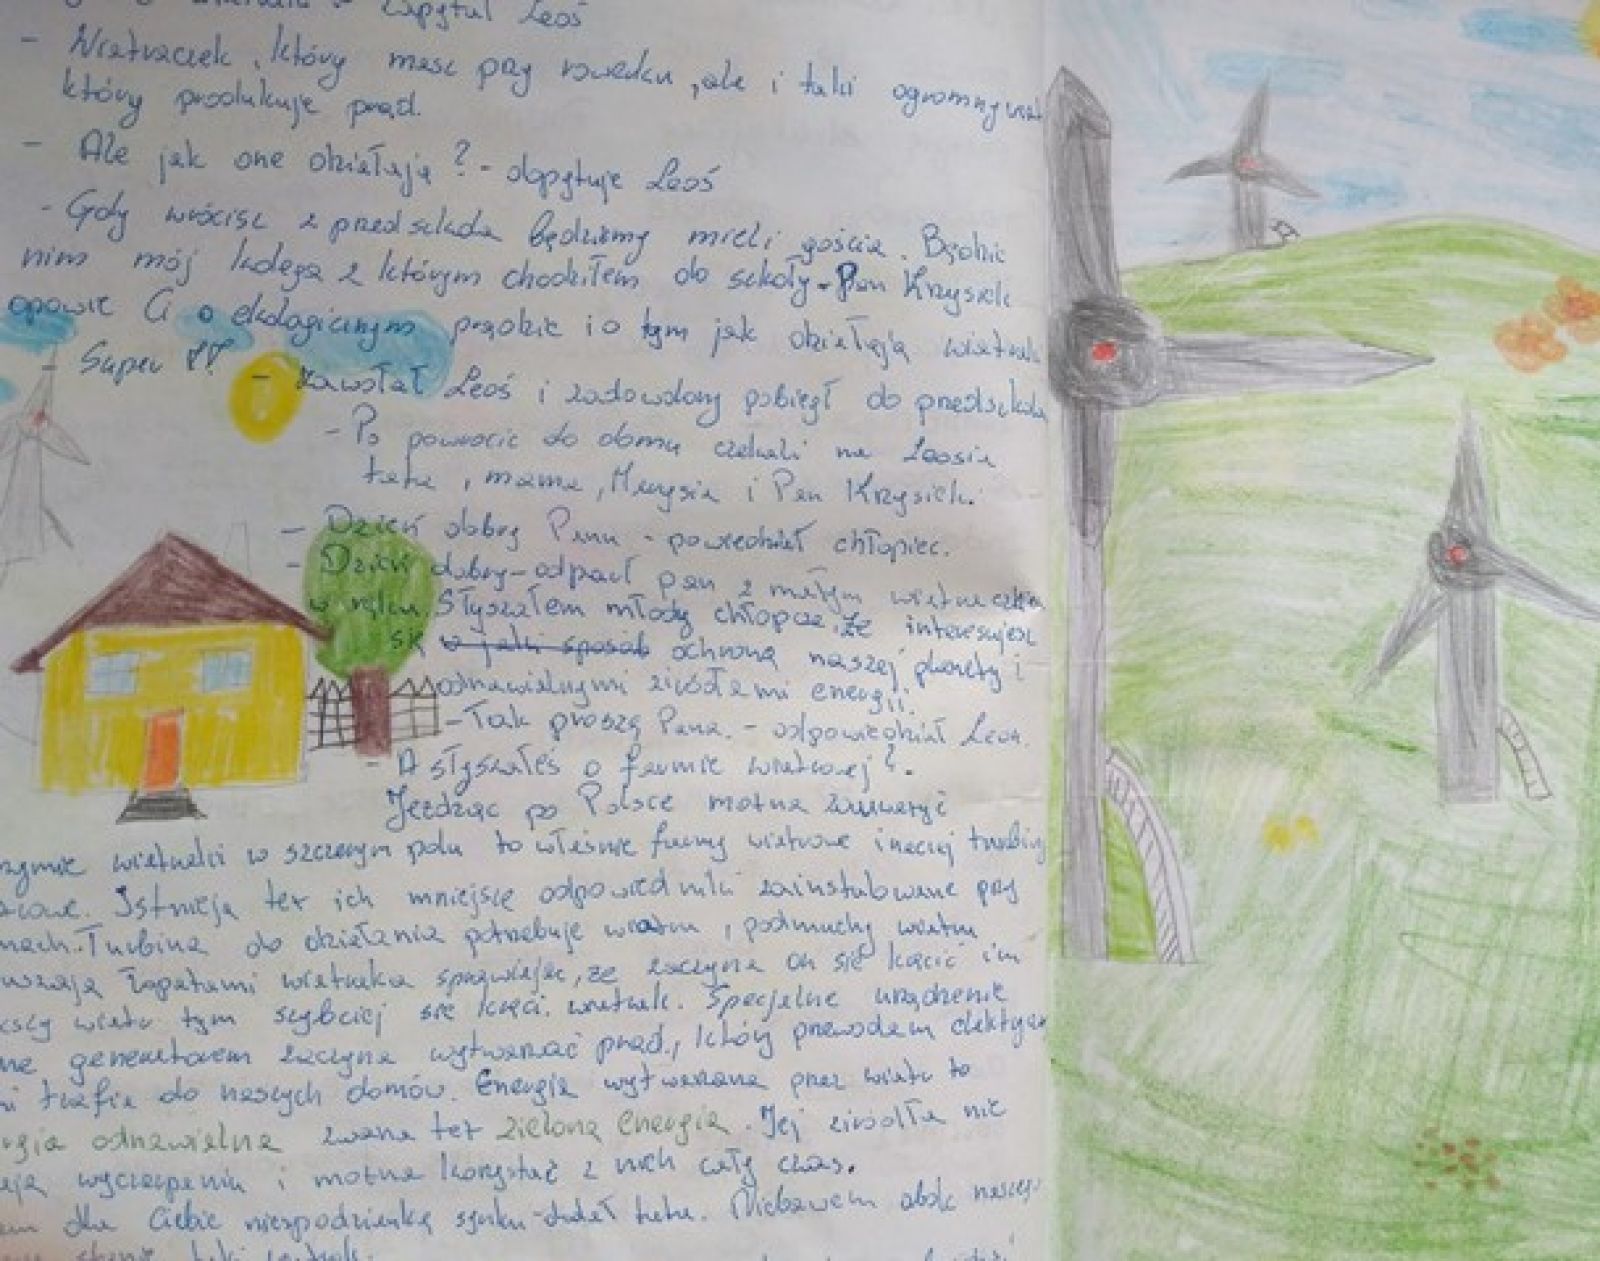 zapytał Leoś
- Wiatraczek, który masz przy rowerku, ale i taki ogromny
który produkuje prąd.
- Ale jak one działają? - dopytuje Leoś
- Gdy wrócisz z przedszkola będziemy mieli gościa. Będzie
nim mój kolega z którym chodziłem do szkoły - Pan Krzysiek
opowie Ci o ekologicznym prądzie i o tym jak działają wiatrak
- Super !! - zawołał Leoś i zadowolony pobiegł do przedszkola
- Po powrocie do domu czekali na Leosia
tata, mama, Marysia i Pan Krzysiek.
- Dzień dobry Panu - powiedział chłopiec.
- Dzień dobry - odparł pan z małym wiatraczkiem
w ręku. Słyszałem młody chłopcze, że interesujesz
się w jaki sposób ochroną naszej planety i
odnawialnymi źródłami energii.
- Tak proszę Pana. - odpowiedział Leon.
- A słyszałeś o farmie wiatrowej?.
Jeżdżąc po Polsce można zauważyć
wiatraki w szczerym polu to właśnie farmy wiatrowe inaczej turbiny
Istnieją też ich mniejsze odpowiedniki zainstalowane przy
Turbina do działania potrzebuje wiatru, podmuchy wiatru
łopatami wiatraka sprawiając, że zaczyna on się kręcić im
wiatr tym szybciej się kręci wiatrak. Specjalne urządzenie
generatorem zaczyna wytwarzać prąd, który przewodem
trafia do naszych domów. Energia wytwarzana przez wiatr to
odnawialna zwana też zieloną energią. Jej źródła nie
wyczerpaniu i można korzystać z nich cały czas.
dla Ciebie niespodziankę synku - dodał tata. Niebawem obok naszego